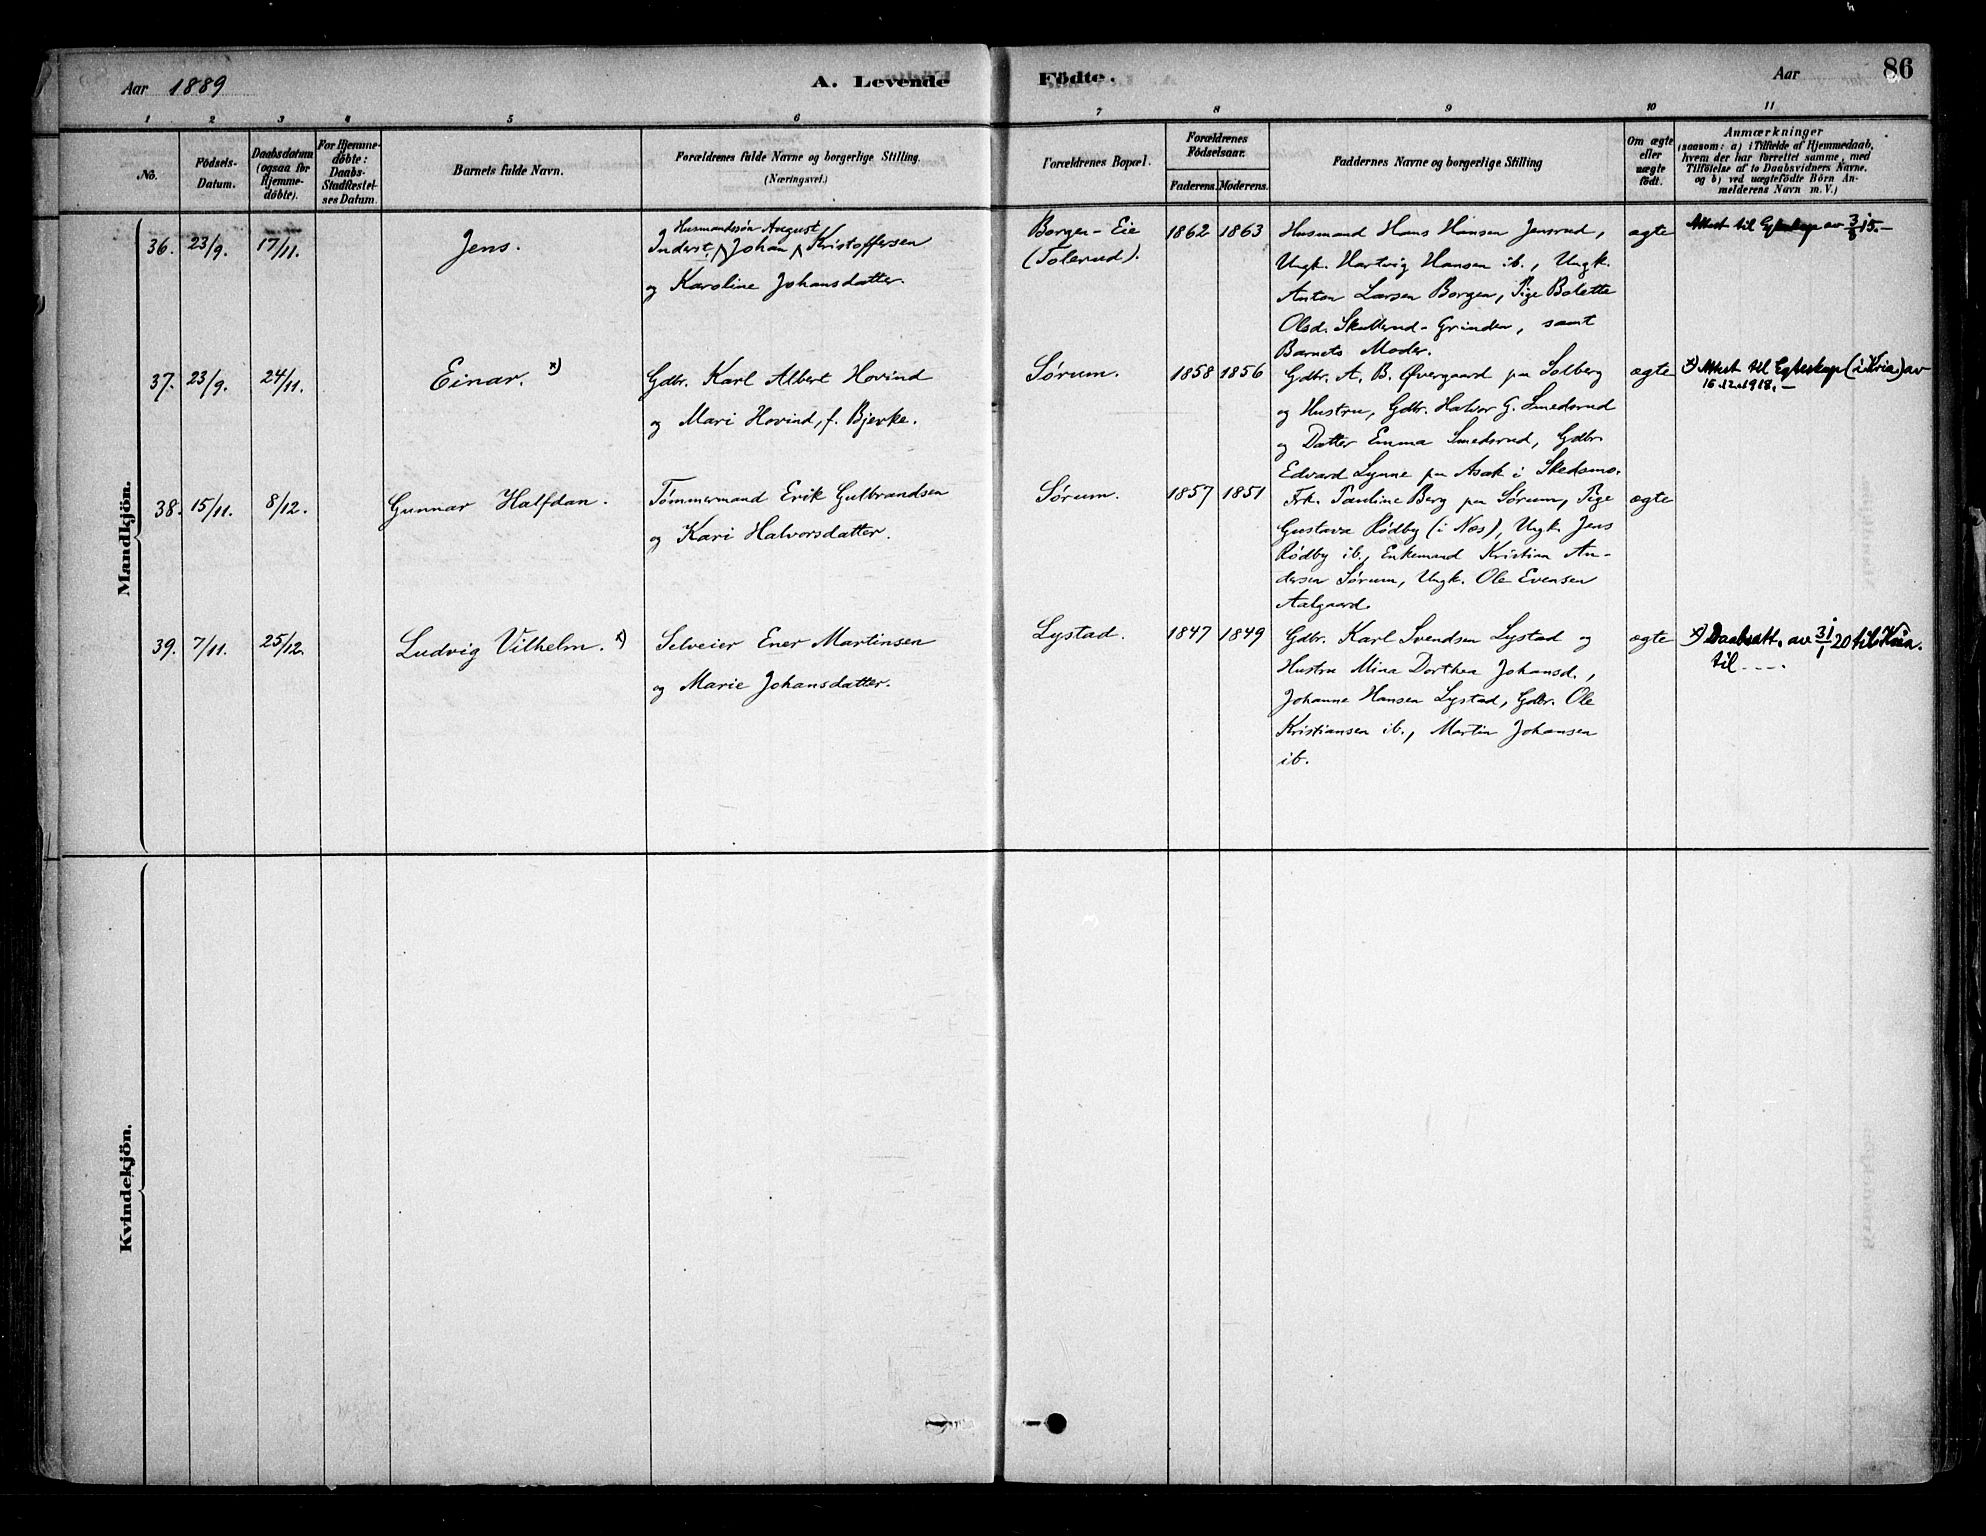 Aar 1889
A. Levende
Födte.
Aar
86
1 2 3 4 5 6 7 8 9 10 11
No.
Födsels-
Datum.
Daabsdatum
(ogsaa for
Hjemme-
döbte).
For Hjemme-
döbte:
Daabs-
Stadfæstel-
ses Datum.
Barnets fulde Navn.
Forældrenes fulde Navne og borgerlige Stilling.
(Næringsvei.)
Forældrenes Bopæl.
Forældrenes
Födselsaar.
Faderens. Moderens.
Faddernes Navne og borgerlige Stilling
Om ægte
eller
uægte
födt.
Anmærkninger
(saasom: a) i Tilfælde af Hjemmedaab,
hvem der har forrettet samme, med
Tilföielse af to Daabsvidners Navne,
og b) ved uægtefödte Börn An-
melderens Navn m. V.)
Mandkjön.
36. 23/9. 17/11. Jens.
Husmandssøn August
Inderst, Johan Kristoffersen
og Karoline Johansdatter.
Borgen-Eie
(Tolerud).
1862 1863
Husmand Hans Hansen Jensrud,
Ungk. Hartvig Hansen ib., Ungk.
Anton Larsen Borgen, Pige Bolette
Olsd. Skatterud-Grinden, samt
Barnets Moder.
ægte
Attest til Egteskap av 3/8 15.-
37. 23/9. 24/11. Einar. x)
Gdbr. Karl Albert Hovind
og Mari Hovind, f. Bjerke.
Sørum.
1858 1856
Gdbr. A. B. Øvergaard paa Solberg
og Hustru, Gdbr. Halvor G. Smedsrud
og Datter Emma Smedsrud, Gdbr.
Edvard Lynne paa Asak i Skedsmo.
ægte
x) Attest til Egteskap (i Kria) av
16.12.1918.-
38. 15/11. 8/12. Gunnar Halfdan.
Tømmermand Erik Gulbrandsen
og Kari Halvorsdatter.
Sørum.
1857 1851
Frk. Pauline Berg paa Sørum, Pige
Gustava Rødby (i Nes), Ungk. Jens
Rødby ib., Enkemand Kristian An-
dersen Sørum, Ungk. Ole Evensen
Aalgaard.
ægte
39. 7/11. 25/12. Ludvig Vilhelm. x)
Selveier Ener Martinsen
og Marie Johansdatter.
Lystad.
1847 1849
Gdbr. Karl Svendsen Lystad og
Hustru Mina Dorthea Johansd.,
Johanne Hansen Lystad, Gdbr. Ole
Kristiansen ib., Martin Johansen
ib.
ægte
x) Daabsatt. av 31/1 20 til Kria.
til ....
Kvindekjön.